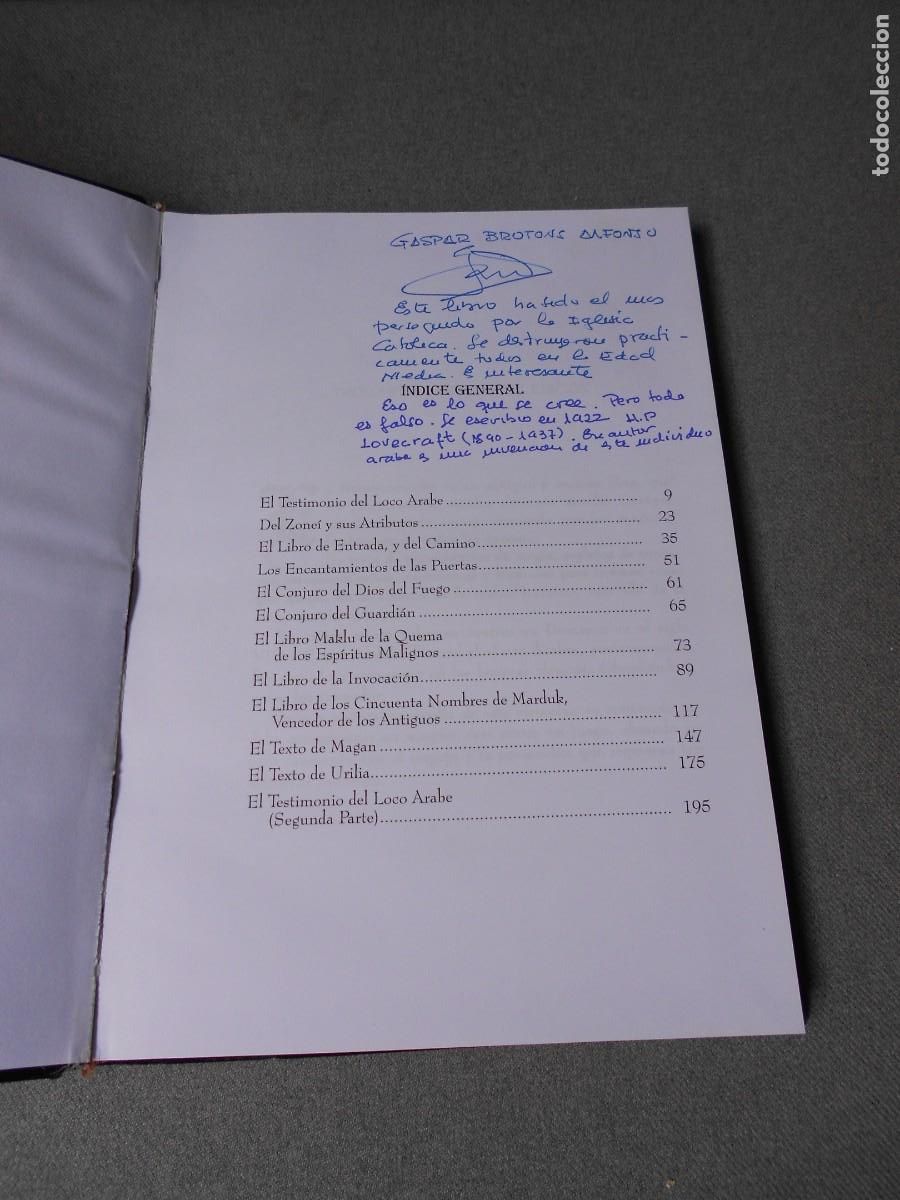 todocoleccion
GASPAR BROTONS ALFONSO
Este libro ha sido el mas
perseguido por la Iglesia
Catolica. Se destruyeron practi-
camente todos en la Edad
Media. Es interesante
ÍNDICE GENERAL
Eso es lo que se cree. Pero todo
es falso. Se escribio en 1922 H.P
Lovecraft (1890-1937). autor
arabe es una invencion de este individuo
El Testimonio del Loco Arabe 9
Del Zoneí y sus Atributos 23
El Libro de Entrada, y del Camino 35
Los Encantamientos de las Puertas 51
El Conjuro del Dios del Fuego 61
El Conjuro del Guardián 65
El Libro Maklu de la Quema
de los Espíritus Malignos 73
El Libro de la Invocación 89
El Libro de los Cincuenta Nombres de Marduk,
Vencedor de los Antiguos 117
El Texto de Magan 147
El Texto de Urilia 175
El Testimonio del Loco Arabe
(Segunda Parte) 195